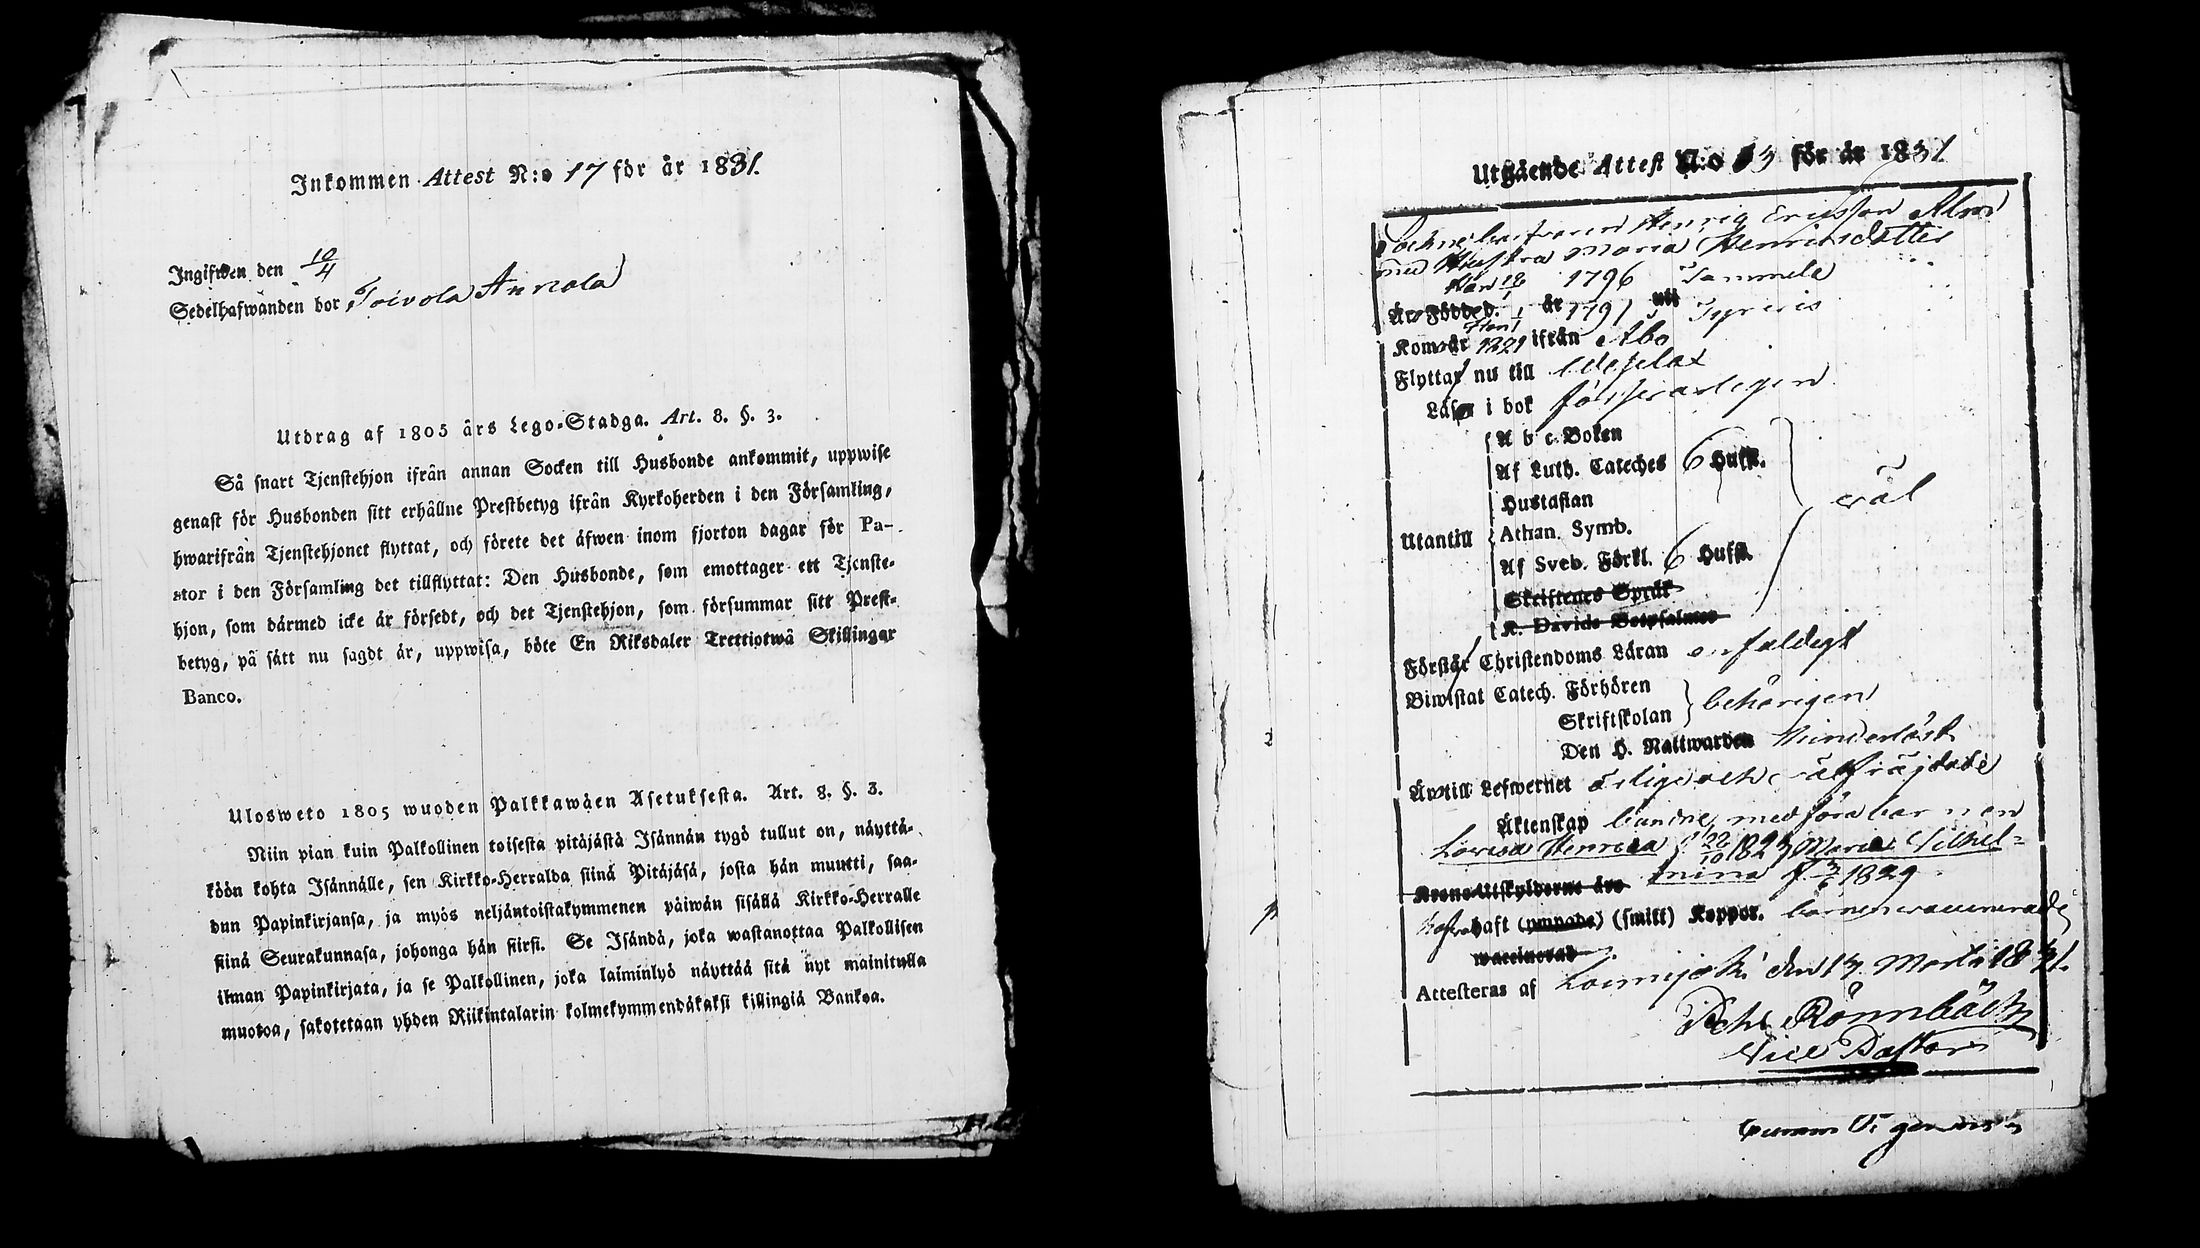 Inkommen Attest N:o 17 för år 1831.
Ingifwen den 10/4
Sedelhafwanden bor Toivola Annola
Utdrag af 1805 års Lego-Stadga. Art. 8. §. 3.
Så snart Tjenstehjon ifrån annan Socken till Husbonde ankommit, uppwise
genast för Husbonden sitt erhållne Prestbetyg ifrån Kyrkoherden i den Församling,
hwarifrån Tjenstehjonet flyttat, och förete det äfwen inom fjorton dagar för Pa-
stor i den Församling det tillflyttat: Den Husbonde, som emottager ett Tjenste-
hjon, som därmed icke är försedt, och det Tjenstehjon, som försummar sitt Prest-
betyg, på sätt nu sagdt är, uppwisa, böte En Riksdaler Trettiotwå Skillingar
Banco.
Ulosweto 1805 wuoden Palkkawäen Asetuksesta. Art. 8. §. 3.
Niin pian kuin Palkollinen toisesta pitäjästä Isännän tygö tullut on, näyttä-
köön kohta Isännälle, sen Kirkko-Herralda siinä Pitäjäsä, josta hän muutti, saa-
dun Papinkirjansa, ja myös neljäntoistakymmenen päiwän sisällä Kirkko-Herralle
siinä Seurakunnasa, johonga hän siirsi. Se Isändä, joka wastanottaa Palkollisen
ilman Papinkirjata, ja se Palkollinen, joka laiminlyö näyttää sitä nyt mainitulla
muotoa, sakotetaan yhden Riikintalarin kolmekymmendäkaksi killingiä Bankoa.
Utgående Attest N:o 13 för år 1831
Henric Ericsson Alm
med Hustru Maria Henricsdotter
Han 18/1 1796 Tammela
Äro Födde d. Hon 1/1 år 1791 uti Tyrvis
Kom år 1821 ifrån Åbo
Flytta nu till Idesplax
Läsa i bok försvarligen
A b c Boken
Af Luth. Cateches 6 Hufst.
Hustaflan
väl
Utantill Athan. Symb.
Af Sveb. Förkl. 6 Hufst.
Skriftenes Språk
K. Davids Botpsalmer
Förstå Christendoms Läran enfaldigt
Biwistat Catech. Förhören
Skriftskolan behörigen
Den H. Nattwarden hinderlöst
Äro till Lefwernet ärlige och välfräjdade
Äktenskap bundne, medföra barnen
Lovisa Henrica f. 22/10 1827, Maria Vilhel-
mina f. 1829
Krono-Utskylderne äro
haft (ympade) (smitt) Koppor. barnen vaccinerade
waccinerad
Attesteras af Loimijoki den 17 Martii 1831.
Rönnbäck
Vice Pastor